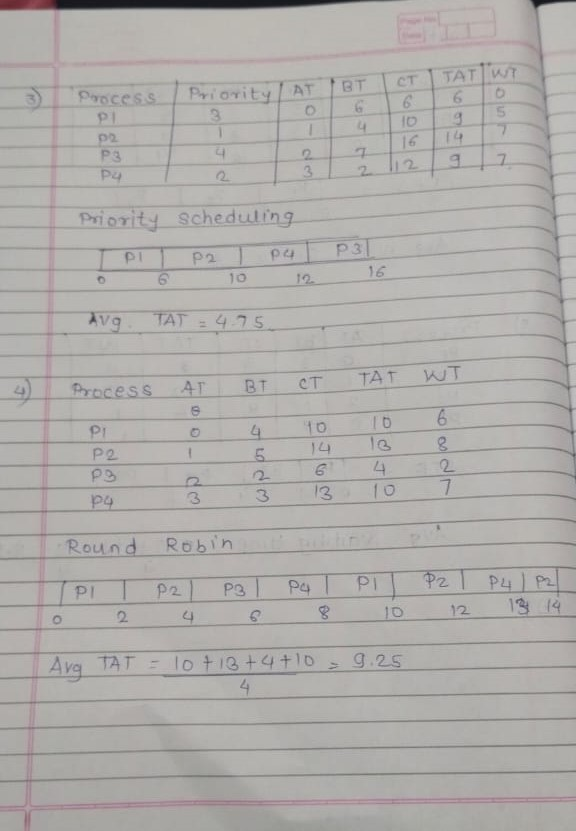 Page No.
Date
3) Process Priority AT BT CT TAT WT
P1 3 0 6 6 6 0
P2 1 1 4 10 9 5
P3 4 2 7 16 14 7
P4 2 3 2 12 9 7
Priority scheduling
P1 P2 P4 P3
0 6 10 12 16
Avg. TAT = 4.75
4) Process AT BT CT TAT WT
0
P1 0 4 10 10 6
P2 1 5 14 13 8
P3 2 2 6 4 2
P4 3 3 13 10 7
Round Robin
P1 P2 P3 P4 P1 P2 P4 P2
0 2 4 6 8 10 12 13 14
Avg TAT = 10+13+4+10 = 9.25
4